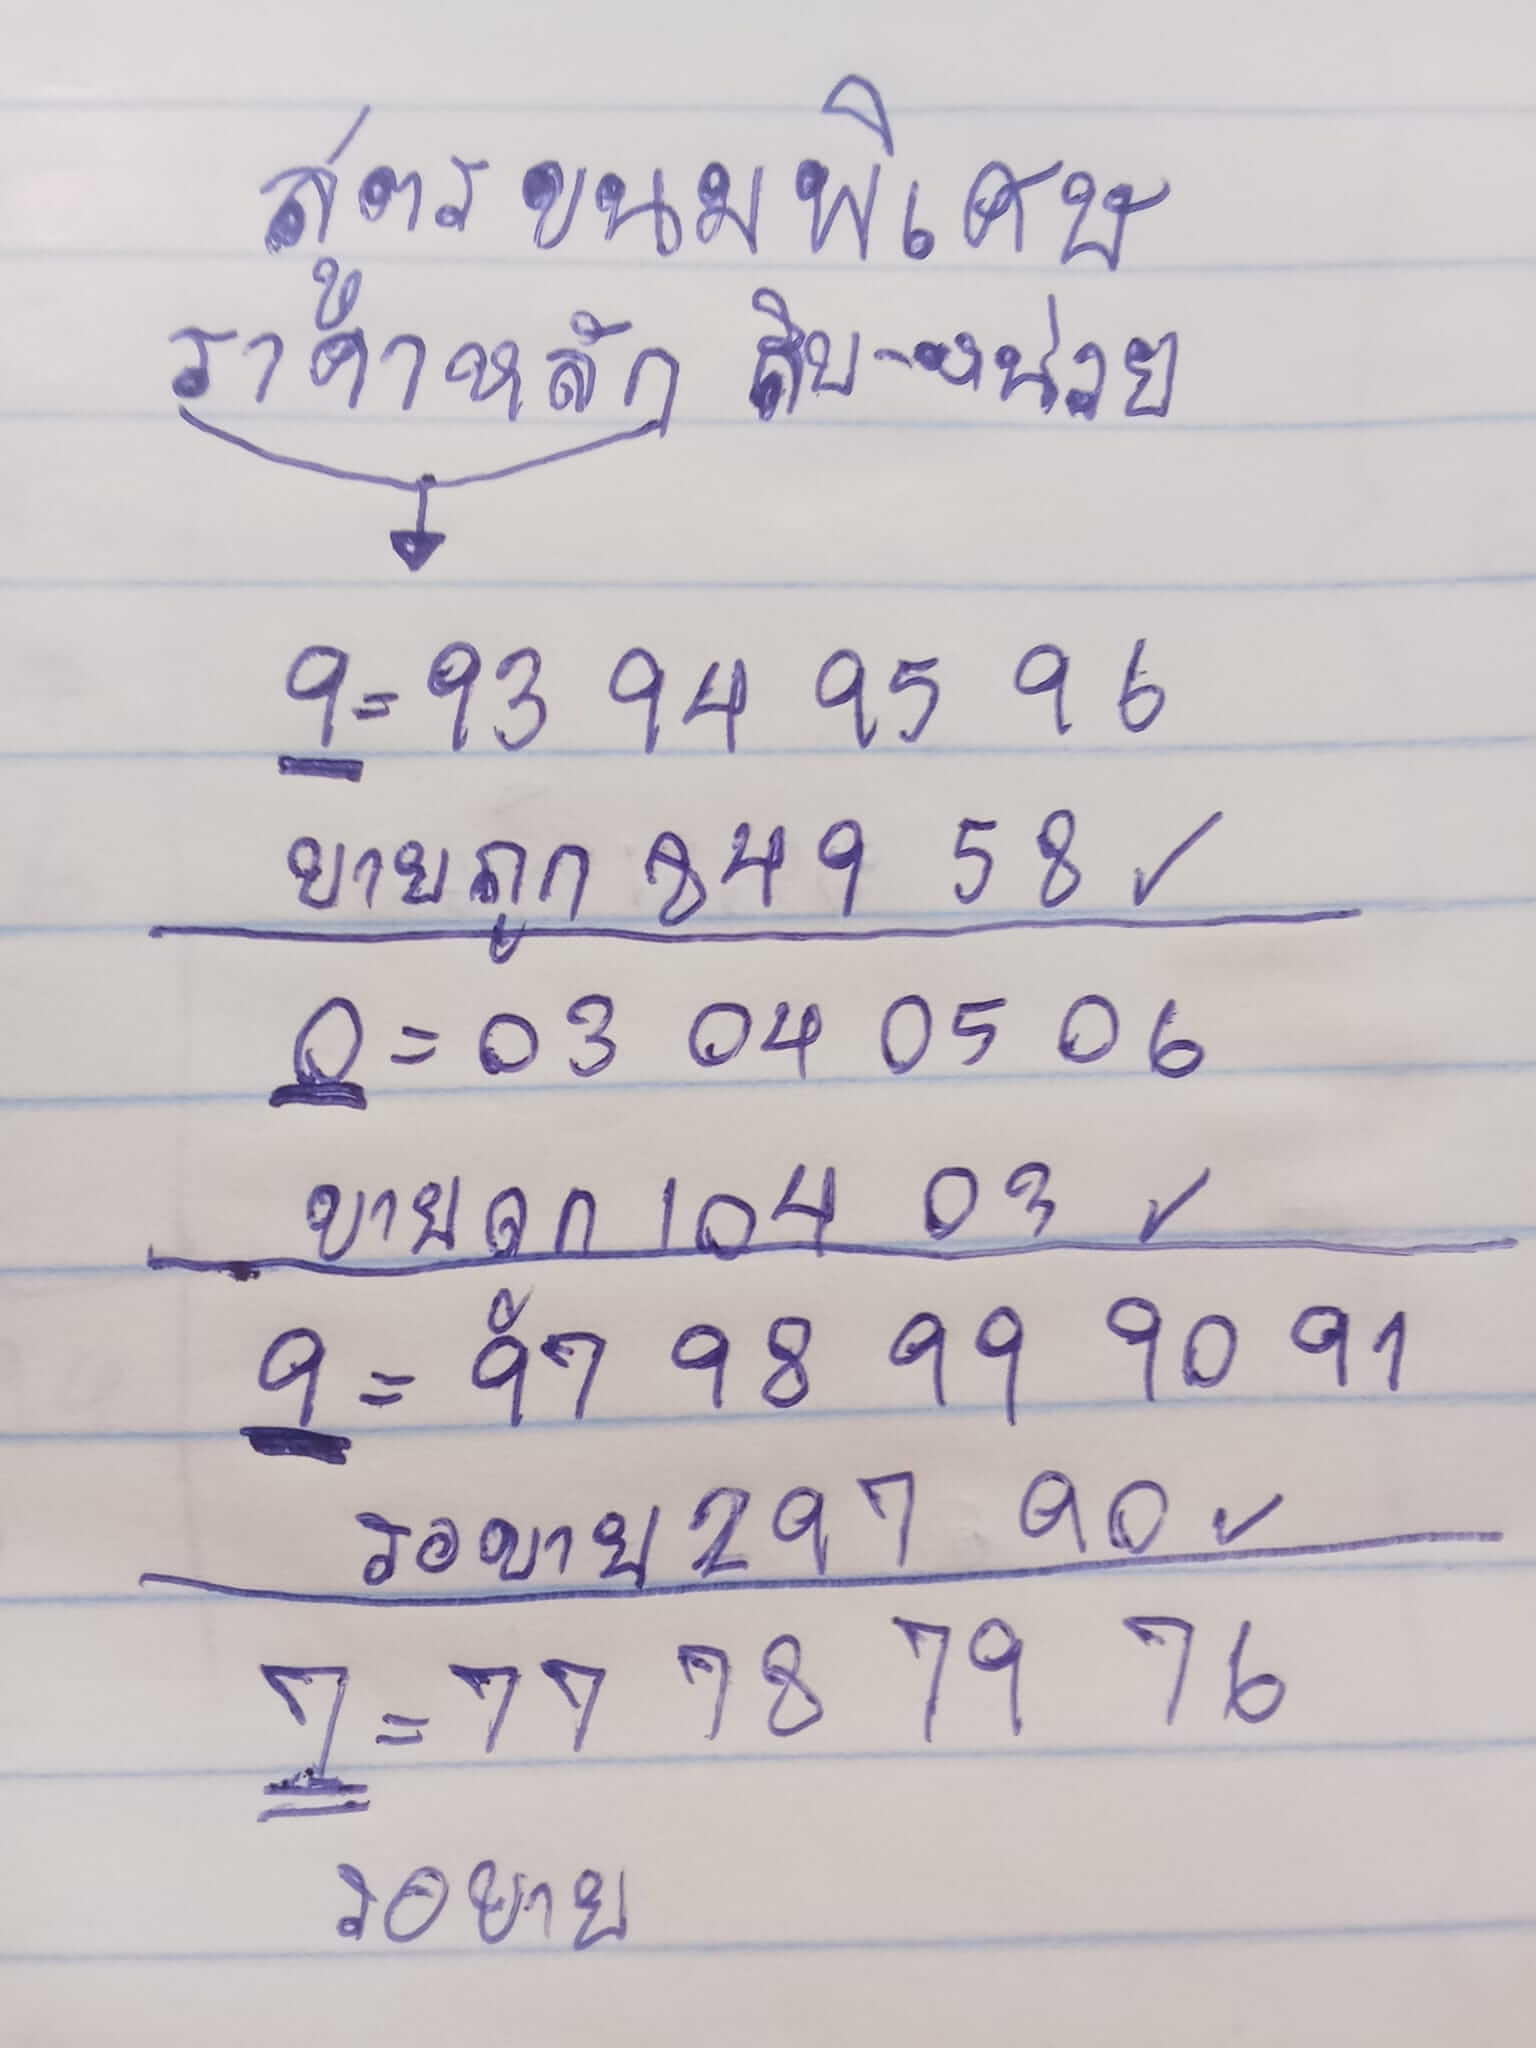 สูตรขนมพิเศษ
ราคาหลัก สิบ-หน่วย
9 = 93 94 95 96
ขายถูก 849 58 ✓
0 = 03 04 05 06
ขายถูก 104 03 ✓
9 = 97 98 99 90 91
รอขาย 297 90 ✓
7 = 77 78 79 76
รอขาย